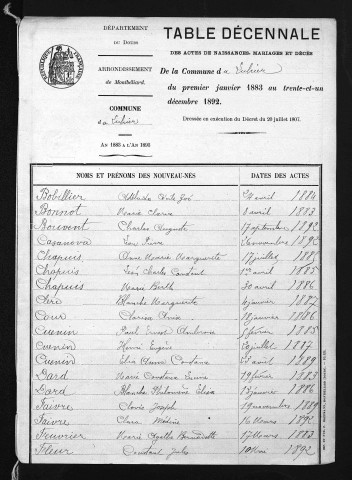 DÉPARTEMENT
DU DOUBS
ARRONDISSEMENT
de Montbéliard.
COMMUNE
AN 1883 A L'AN 1893
TABLE DÉCENNALE
DES ACTES DE NAISSANCES, MARIAGES ET DÉCÈS
De la Commune d
du premier janvier 1883 au trente-et-un
décembre 1892.
Dressée en exécution du Décret du 20 juillet 1807.
NOMS ET PRÉNOMS DES NOUVEAU-NÉS DATES DES ACTES
Bobillier avril 1884
Bonnot Marie avril 1883
Bouvent Charles Auguste 17 septembre 1892
Casanova novembre 1892
Chapuis Marie Marguerite 17 juillet 1885
Chapuis Charles Constant avril 1885
Chapuis Marie Berthe 30 avril 1886
Clerc Blanche Marguerite janvier 1887
Cour janvier 1886
Cuenin Paul Ernest Ambroise février 1885
Cuenin Henri Eugène juillet 1887
Cuenin avril 1889
Dard Marie février 1883
Dard Blanche Philomène Elisa janvier 1886
Faivre Clovis Joseph novembre 1889
Faivre Clara 16 Mars 1892
Feuvrier Marie Agathe Bernadette 17 Mars 1883
Fleur Constant Jules Mai 1892